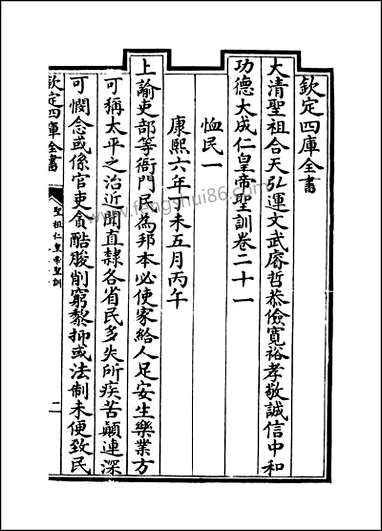 欽定四庫全書
大清聖祖合天弘運文武睿哲恭儉寬裕孝敬誠信中和
功德大成仁皇帝聖訓卷二十一
恤民一
康熙六年丁未五月丙午
上諭吏部等衙門民為邦本必使家給人足安生樂業方
可稱太平之治近聞直隸各省民多失所疾苦顛連深
可憫念或係官吏貪酷朘削窮黎抑或法制未便致民
欽定四庫全書
聖祖仁皇帝聖訓
www.fengshui86.com